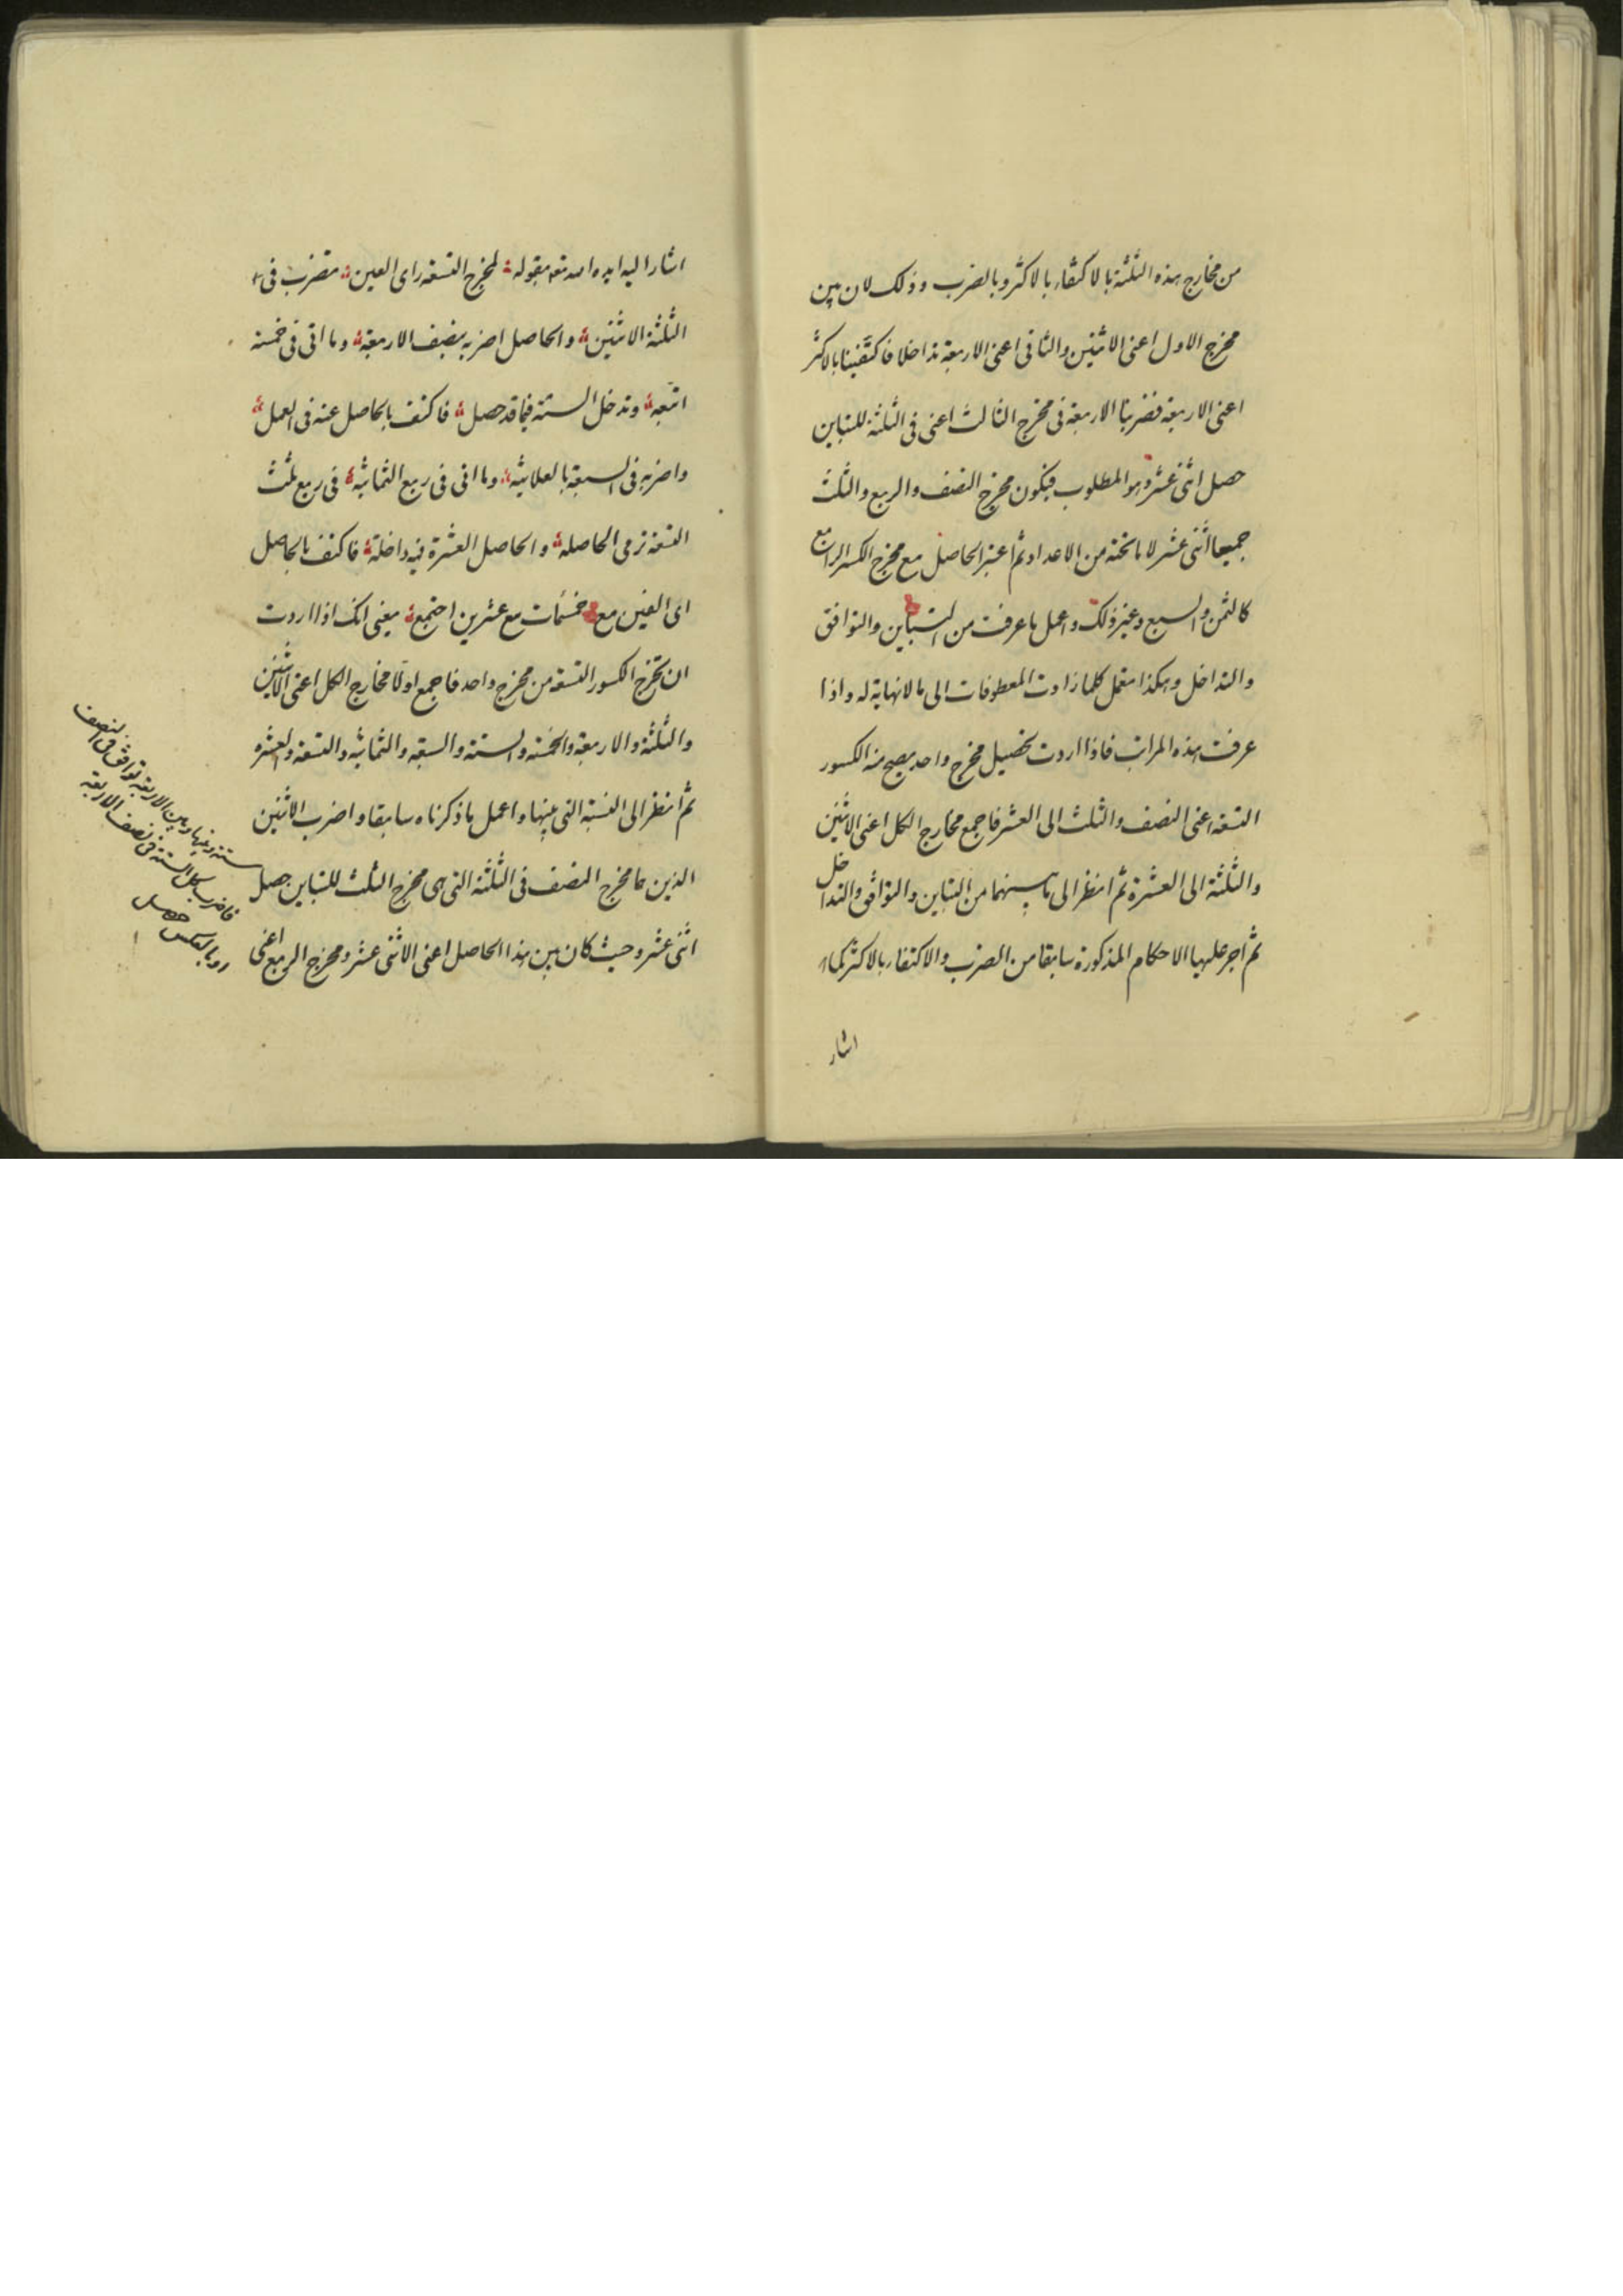 من مخارج هذه الثلثة بالاكتفاء بالاكثر وبالضرب وذلك لان بين
مخرج الاول اعنى الاثنين والثانى اعنى الاربعة تداخلا فاكتفينا بالاكثر
اعنى الاربعة فضربنا الاربعة فى مخرج الثالث اعنى فى الثلثة للتباين
حصل اثنى عشر وهو المطلوب فيكون مخرج النصف والربع والثلث
جميعا اثنى عشر لا ما تحته من الاعداد ثم اعتبر الحاصل مع مخرج الكسر الرابع
كالثمن والسبع وغير ذلك واعمل ما عرفت من التباين والتوافق
والتداخل وهكذا تعمل كلما زادت المعطوفات الى ما لا نهاية له واذا
عرفت هذه المراتب فاذا اردت تحصيل مخرج واحد يصح منه الكسور
التسعة اعنى النصف والثلث الى العشر فاجمع مخارج الكل اعنى الاثنين
والثلثة الى العشرة ثم انظر الى ما بينهما من التباين والتوافق والتداخل
ثم اجر عليها الاحكام المذكورة سابقا من الضرب والاكتفاء بالاكثر كما
اشار
اشار اليه ايده الله تعه بقوله لمخرج التسعة راى العين تضرب فى
الثلثة الاثنين والحاصل اضربه بنصف الاربعة وما اتى فى خمسة
اتبعه وتدخل الستة فيما قد حصل فاكتف بالحاصل عنه فى العمل
واضربه فى السبعة بالعلانيه وما اتى فى ربع الثمانيه فى ربع ثلث
التسعة ترمى الحاصله والحاصل العشرة فيه داخلة فاكتف بالحاصل
اى الفين مع خمسمات مع عشرين اجتمع يعنى انك اذا اردت
ان تخرج الكسور التسعة من مخرج واحد فاجمع اولا مخارج الكل اعنى الاثنين
والثلثة والاربعة والخمسة والستة والسبعة والثمانيه والتسعة والعشره
ثم انظر الى النسبة التى بينها واعمل ما ذكرناه سابقا واضرب الاثنين
الذين هما مخرج النصف فى الثلثة التى هى مخرج الثلث للتباين حصل
اثنى عشر وحيث كان بين هذا الحاصل اعنى الاثنى عشر ومخرج الربع اعنى
ستة وبينها وبين الاربعة توافق فى النصف
فاضرب كل الستة فى نصف الاربعة
او بالعكس حصل